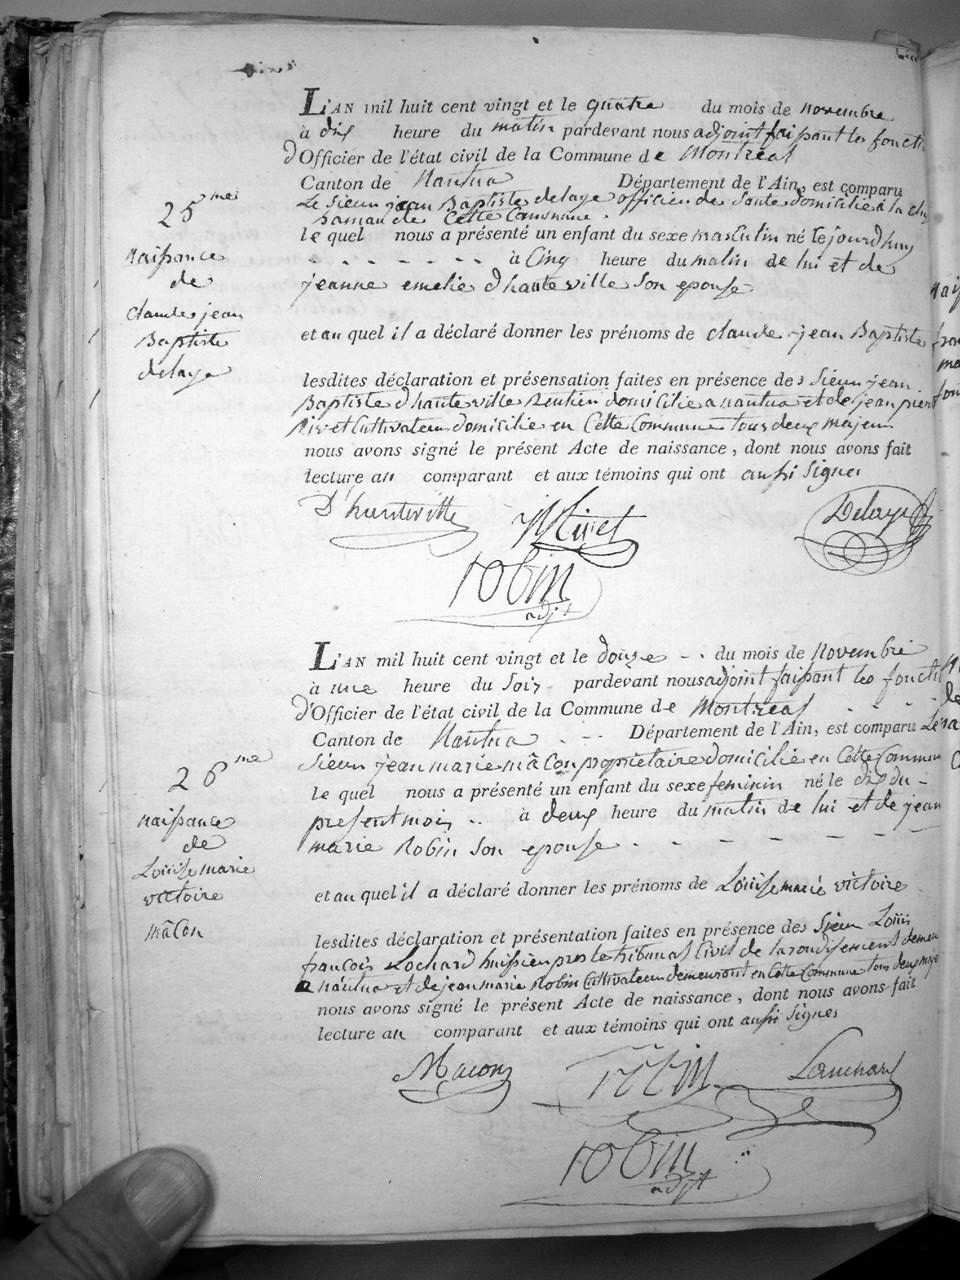 L'AN mil huit cent vingt et le quatre du mois de novembre
à dix heure du matin pardevant nous adjoint faisant les foncti
d'Officier de l'état civil de la Commune de Montréal
Canton de Nantua Département de l'Ain, est comparu
Le Sieur jean Baptiste delage officier de Sante domicilié à la
de Cette Commune.
le quel nous a présenté un enfant du sexe masculin né le jourdhuy
à Cinq heure du matin de lui et de
jeanne emelie d'hauteville Son epouse
et au quel il a déclaré donner les prénoms de claude jean Baptiste
lesdites déclaration et présensation faites en présence des Sieur jean
Baptiste d'hauteville Rentier domicilié a nantua et de jean pierre
Rivet Cultivateur domicilié en Cette Commune tous deux majeurs
nous avons signé le présent Acte de naissance, dont nous avons fait
lecture au comparant et aux témoins qui ont aussi Signes
25 me
naissance
de
claude jean
Baptiste
delage
D'hauteville Rivet Delage
robin
adjt
L'AN mil huit cent vingt et le douze du mois de novembre
à une heure du Soir pardevant nous adjoint faisant les foncti
d'Officier de l'état civil de la Commune de Montréal
Canton de Nantua Département de l'Ain, est comparu Le
Sieur jean marie mâcon propriétaire domicilié en Cette Commune
le quel nous a présenté un enfant du sexe feminin né le dix du
present mois à deux heure du matin de lui et de jean
marie Robin Son epouse
et au quel il a déclaré donner les prénoms de Louise marie victoire
lesdites déclaration et présentation faites en présence des Sieur Louis
françois Lochard huissier pres le tribunal Civil de larondissement
a nantua et de jean marie Robin Cultivateur demeurant en Cette Commune tous deux
nous avons signé le présent Acte de naissance, dont nous avons fait
lecture au comparant et aux témoins qui ont aussi Signes
26 me
naissance
de
Louise marie
victoire
mâcon
Macon robin Lauchard
robin
adjt